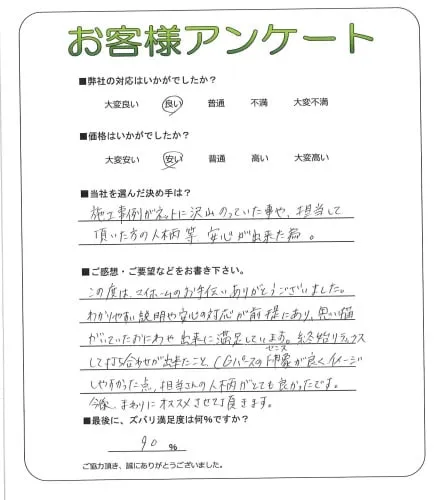 お客様アンケート
■弊社の対応はいかがでしたか？
大変良い 良い 普通 不満 大変不満
■価格はいかがでしたか？
大変安い 安い 普通 高い 大変高い
■当社を選んだ決め手は？
施工事例がネットに沢山のっていた事や、担当して
頂いた方の人柄等 安心が出来た為。
■ご感想・ご要望などをお書き下さい。
この度は、マイホームのお手伝いありがとうございました。
わかりやすい説明や安心の対応が前提にあり、思い描
がいていたおにわや 出来に満足しています。終始リラックス
して打ち合わせが出来たこと、CGパースの印象が良くイメージ
センス
しやすかった点、担当さんの人柄がとても良かったです。
今後、まわりにオススメさせて頂きます。
■最後に、ズバリ満足度は何%ですか？
90 %
ご協力頂き、誠にありがとうございました。